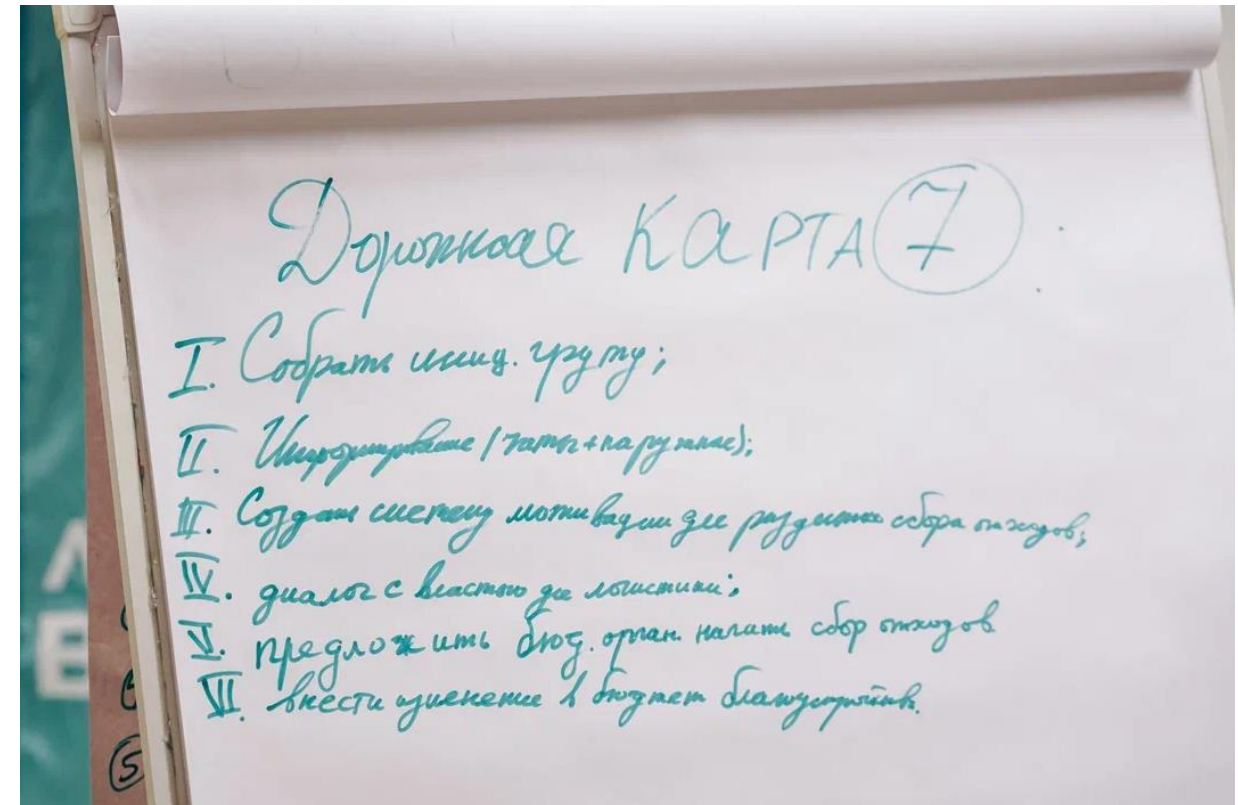 Дорожная КАРТА 7
I. Собрать иниц. группу;
II. Информирование (чаты+наружные);
III. Создать систему мотивации для раздельного сбора отходов;
IV. диалог с властью для логистики;
V. предложить бюд. орган. начать сбор отходов
VII. внести изменение в бюджет благоустройств.
5